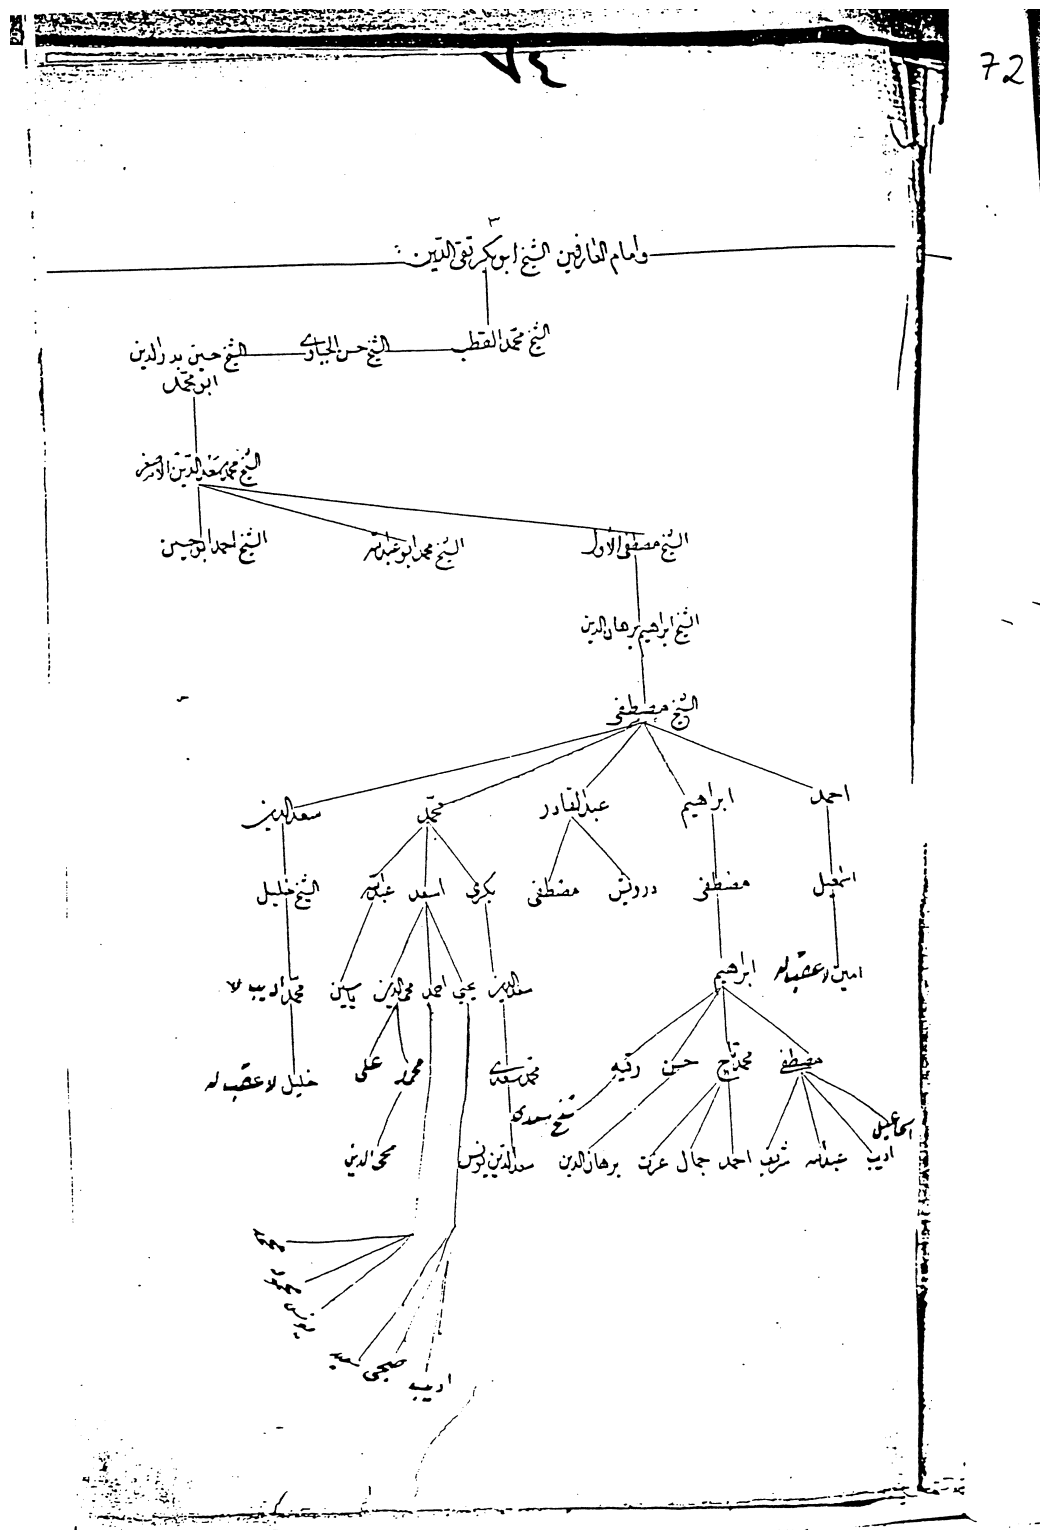 ٧٤
72
٣
وامام العارفين الشيخ ابو بكر تقي الدين
الشيخ محمد القطب الشيخ حسن الجباوي الشيخ حسين بدر الدين
ابو محمد
الشيخ محمد سعد الدين الاصغر
الشيخ مصطفى الاول الشيخ محمد ابو عبدالله الشيخ احمد ابو حسين
الشيخ ابراهيم برهان الدين
الشيخ مصطفى
احمد ابراهيم عبد القادر محمد سعد الدين
اسمعيل مصطفى درويش مصطفى بكري اسعد عبدالله الشيخ خليل
امين لا عقب له ابراهيم سعد الدين يحيى احمد محي الدين ياسين محمد اديب لا
مصطفى محمد تاج حسن رقيه محمد سعدي محمود علي خليل لا عقب له
اسماعيل اديب عبدالله شريف احمد جمال عزت برهان الدين شيخ سعدي سعد الدين يونس محي الدين
محمد
محمود
يونس
سعيد صبحي اديب